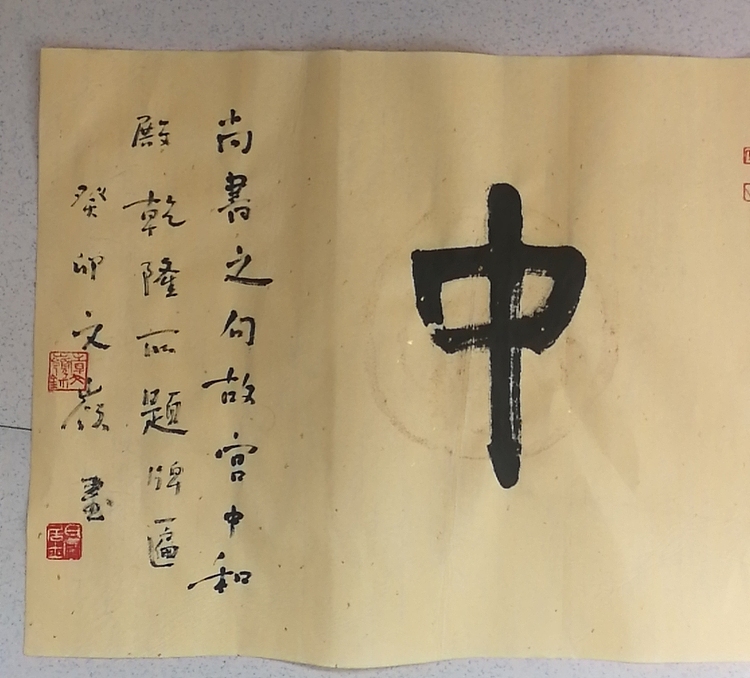 中
尚書之句故宫中和
殿乾隆所題牌匾
癸卯文嶺書